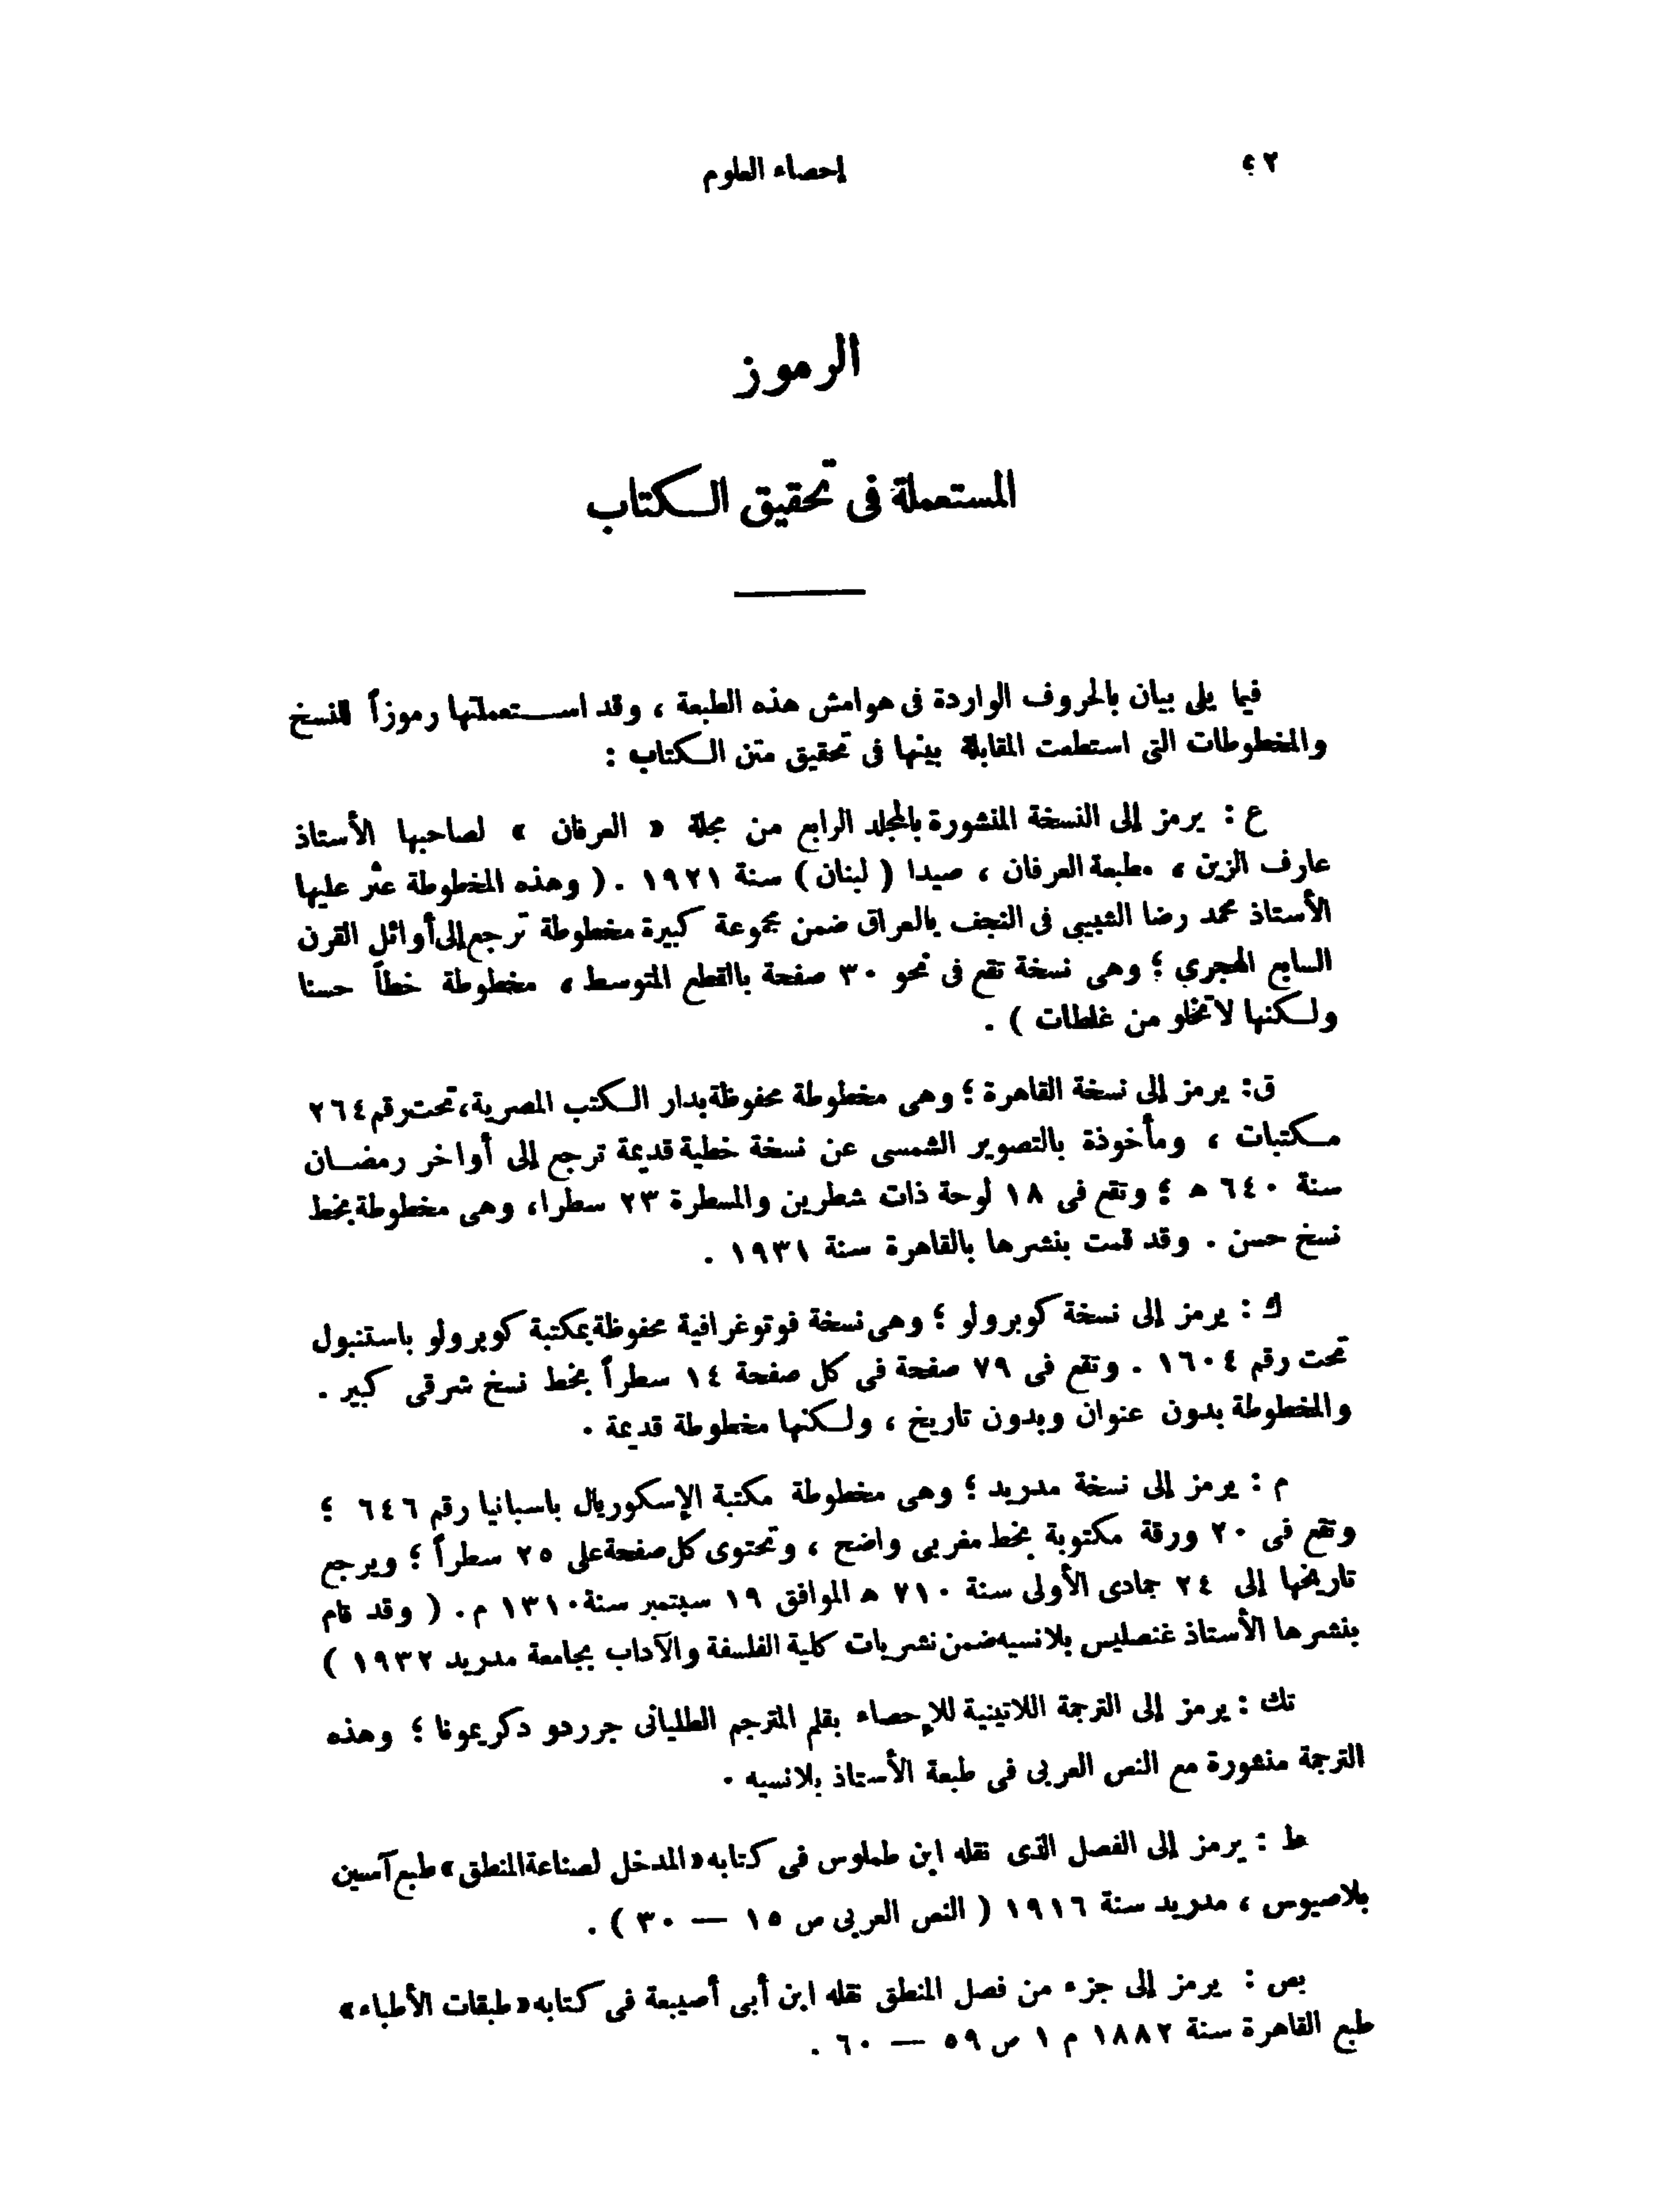 ٤٢
إحصاء العلوم
الرموز
المستعملة فى تحقيق الكتاب
فيما يلى بيان بالحروف الواردة فى هوامش هذه الطبعة ، وقد استعملتها رموزاً للنسخ
والمخطوطات التى استطعت المقابلة بينها فى تحقيق متن الكتاب :
ع : يرمز إلى النسخة المنشورة بالمجلد الرابع من مجلة « العرفان » لصاحبها الأستاذ
عارف الزين ، مطبعة العرفان ، صيدا ( لبنان ) سنة ١٩٢١ . ( وهذه المخطوطة عثر عليها
الأستاذ محمد رضا الشبيبى فى النجف بالعراق ضمن مجموعة كبيرة مخطوطة ترجع إلى أوائل القرن
السابع الهجري ؛ وهى نسخة تقع فى نحو ٣٠ صفحة بالقطع المتوسط ، مخطوطة خطاً حسنا
ولكنها لا تخلو من غلطات ) .
ق : يرمز إلى نسخة القاهرة ؛ وهى مخطوطة محفوظة بدار الكتب المصرية ، تحت رقم ٢٦٤
مكتبات ، ومأخوذة بالتصوير الشمسى عن نسخة خطية قديمة ترجع إلى أواخر رمضان
سنة ٦٤٠ ه ؛ وتقع فى ١٨ لوحة ذات شطرين والمسطرة ٢٣ سطرا ، وهى مخطوطة بخط
نسخ حسن . وقد قمت بنشرها بالقاهرة سنة ١٩٣١ .
ك : يرمز إلى نسخة كوبرولو ؛ وهى نسخة فوتوغرافية محفوظة بمكتبة كوبرولو باستنبول
تحت رقم ١٦٠٤ . وتقع فى ٧٩ صفحة فى كل صفحة ١٤ سطراً بخط نسخ شرقى كبير .
والمخطوطة بدون عنوان وبدون تاريخ ، ولكنها مخطوطة قديمة .
م : يرمز إلى نسخة مدريد ؛ وهى مخطوطة مكتبة الإسكوريال باسبانيا رقم ٦٤٦ ؛
وتقع فى ٢٠ ورقة مكتوبة بخط مغربى واضح ، وتحتوى كل صفحة على ٢٥ سطراً ؛ ويرجع
تاريخها إلى ٢٤ جمادى الأولى سنة ٧١٠ ه الموافق ١٩ سبتمبر سنة ١٣١٠ م . ( وقد قام
بنشرها الأستاذ غنصليس بلانسيه ضمن نشريات كلية الفلسفة والآداب بجامعة مدريد ١٩٣٢ )
تك : يرمز إلى الترجمة اللاتينية للإحصاء بقلم المترجم الطليانى جرردو دكريمونا ؛ وهذه
الترجمة منشورة مع النص العربى فى طبعة الأستاذ بلانسيه .
ط : يرمز إلى الفصل الذى نقله ابن طملوس فى كتابه « المدخل لصناعة المنطق » طبع آسين
بلاصيوس ، مدريد سنة ١٩١٦ ( النص العربى ص ١٥ — ٣٠ ) .
بص : يرمز إلى جزء من فصل المنطق نقله ابن أبى أصيبعة فى كتابه « طبقات الأطباء »
طبع القاهرة سنة ١٨٨٢ م ١ ص ٥٩ — ٦٠ .